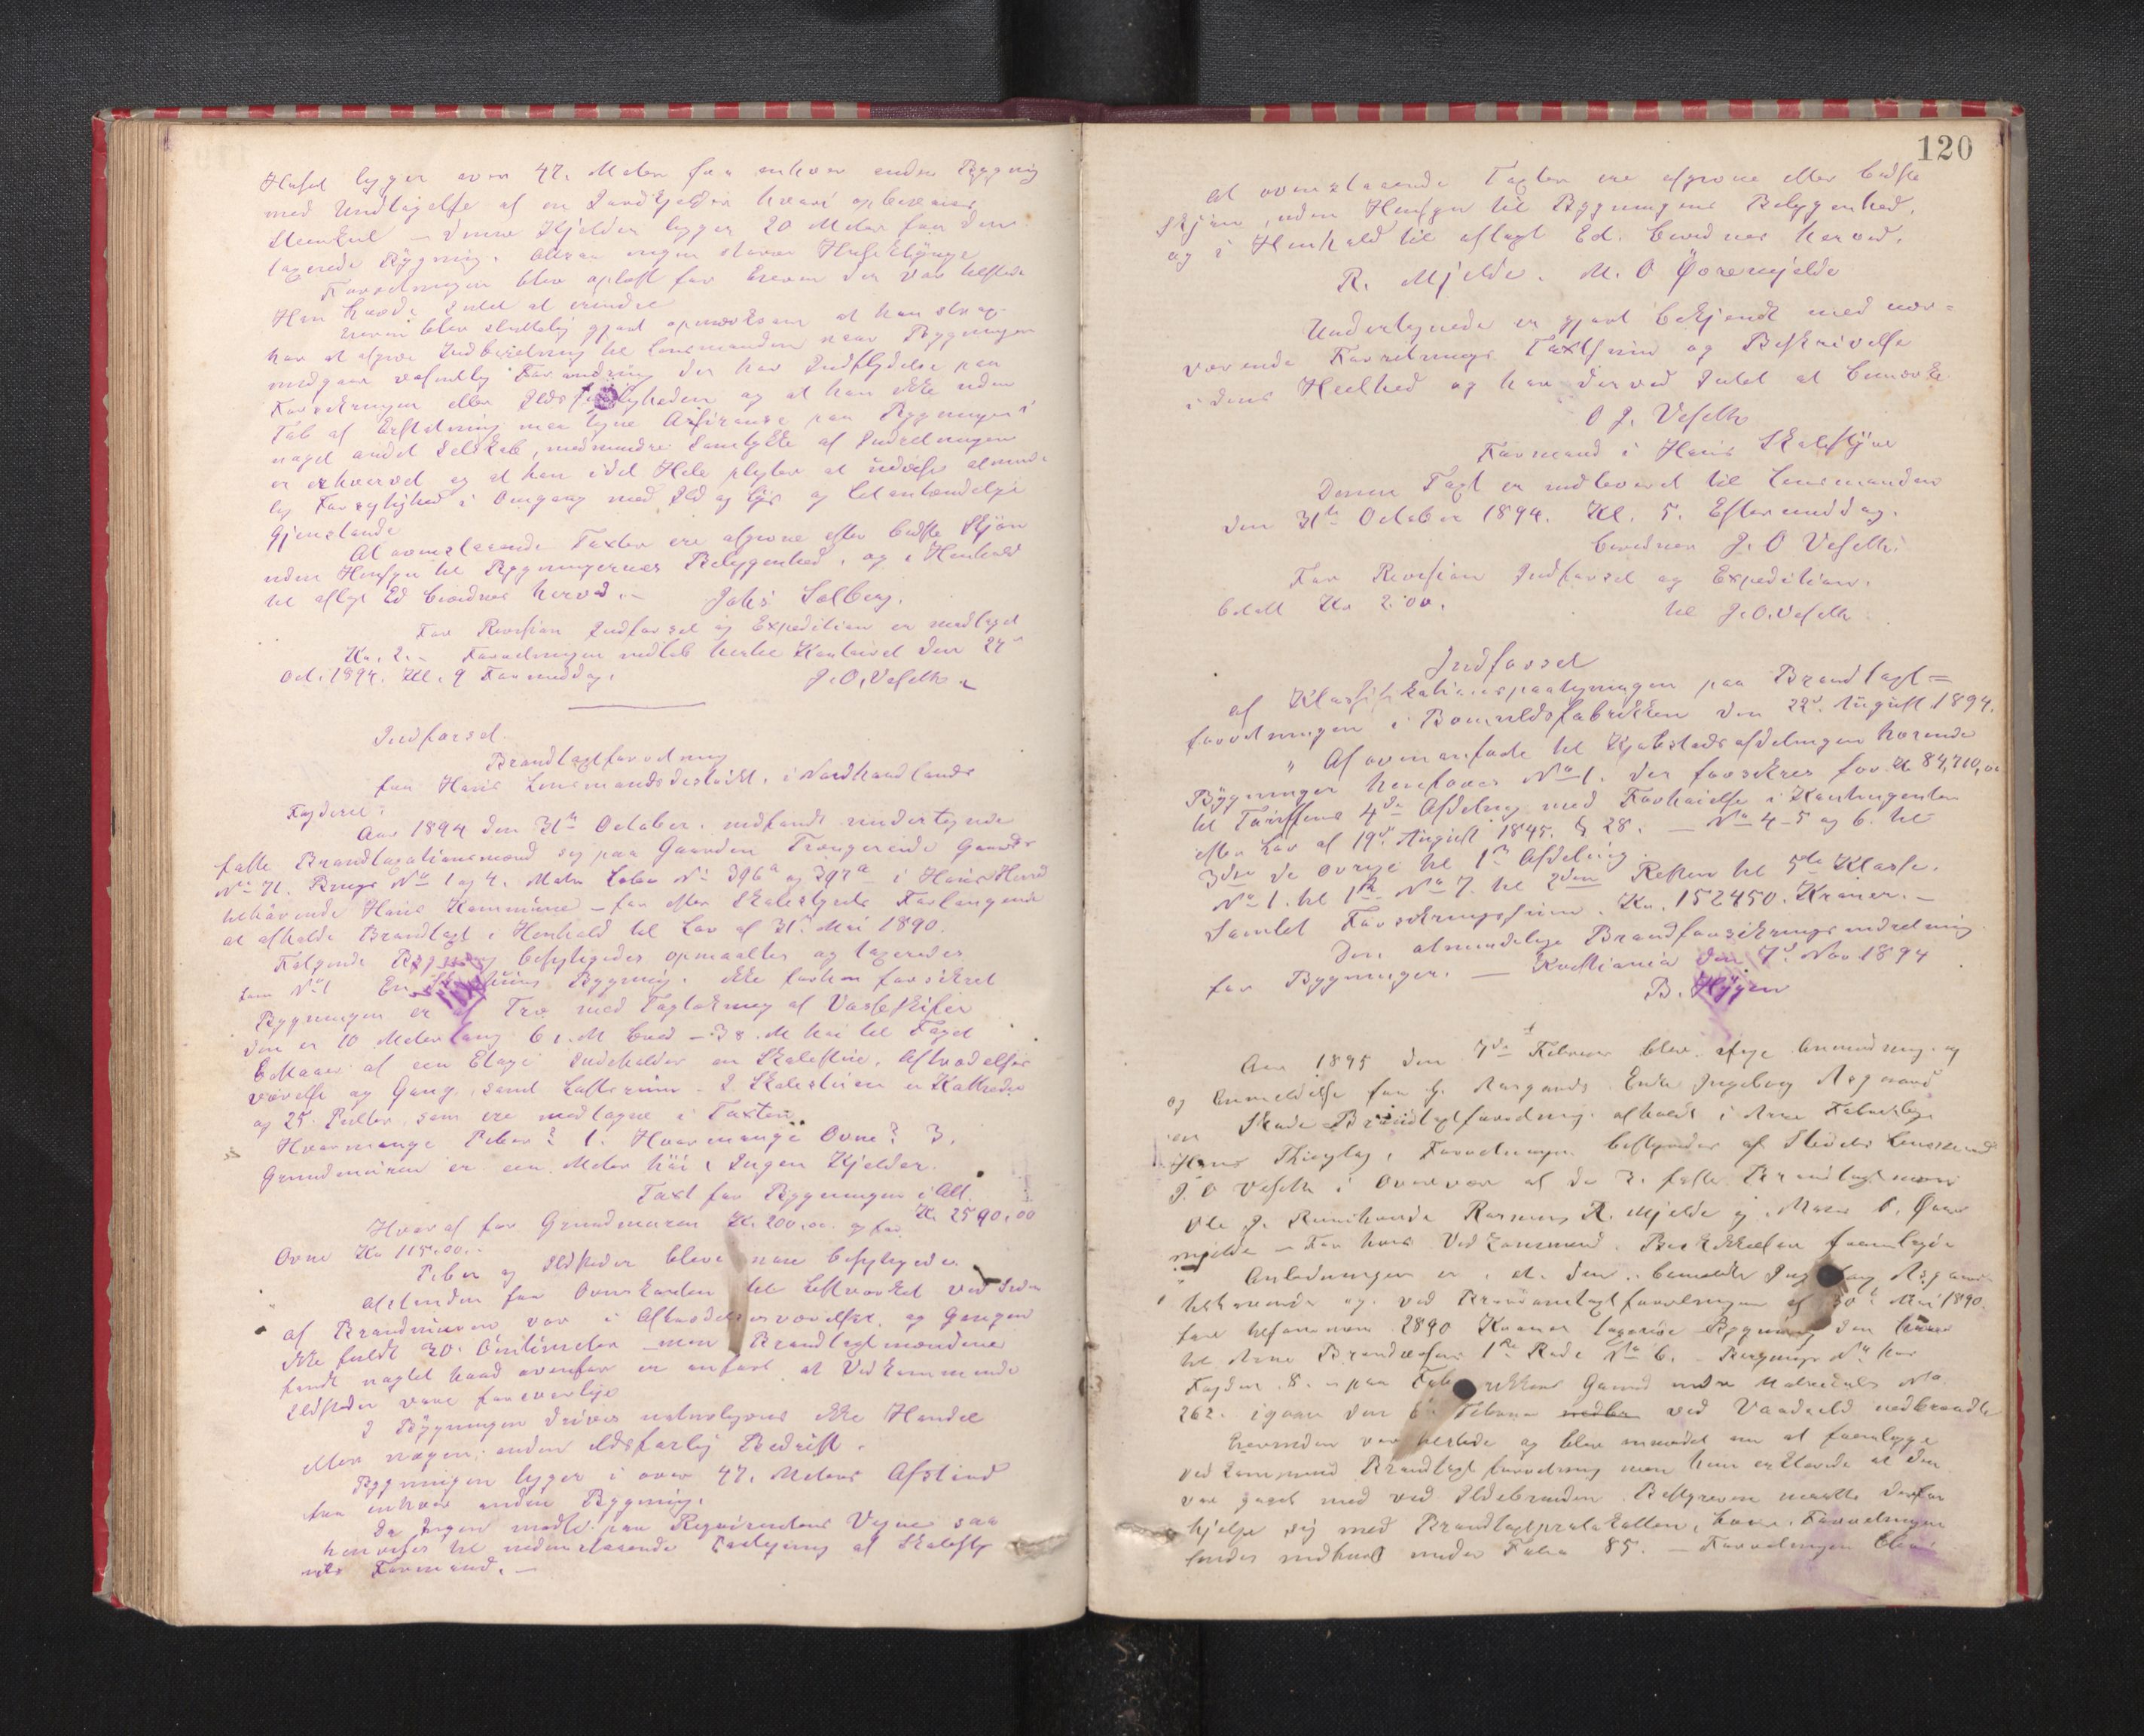 Huset ligger over 47. Meter fra enhver anden Bygning
med Undtagelse af en Jordkjelder hvori opbevares
Steenkul — denne Kjelder ligger 20 Meter fra den
taxerede Bygning. ingen større Huseklynge
Forretningen blev oplæst for Eieren der var tilstede
Han havde Intet at erindre
Eieren blev skriftelig gjort opmærksom at han strax
har at afgive Indberetning til Lensmanden naar Bygningen
undgaar væsentlig Forandring der har Indflydelse paa
Forsikringen eller Ildsfarligheden og at han ikke uden
Tab af Erstatning maa tegne Assurance paa Bygningen i
noget andet Selskab, medmindre Samtykke af Indretningen
er erhvervet og at han i det Hele pligter at udvise alminde-
lig Forsigtighed i Omgang med Ild og Lys og letantændelige
Gjenstande
At ovenstaaende Taxter ere afgivne efter bedste Skjøn
uden Hensyn til Bygningernes Beliggenhed, og i Henhold
til aflagt Ed bevidnes herved. — Johs Solberg.
For Revision Indførsel og Expedition er modtaget
Kr. 2. — Forretningen indløb herti Kontoiret den 24de
Oct. 1894. Kl. 9 Formiddag. J. O. Veseth
Indførsel.
Brandtaxtforretning
fra Haus Lensmandsdistrikt, i Nordhordlands
Fogderi.
Aar 1894 den 31te October. indfandt undertegnede
faste Brandtaxationsmænd sig paa Gaarden Trengereide Gaards
No 71. Brugs No 1 og 4. Matr. Løbe No 396a og 397a i Haus Herred
tilhørende Haus Kommune — for efter Skolestyrets Forlangende
at afholde Brandtaxt i Henhold til Lov af 31te Mai 1890.
Følgende Bygning besigtigedes opmaaltes og taxeredes
som No 1 En Bygning. ikke forhen forsikret
Bygningen er af Træ med Taglækning af Vosseskifer
den er 10 Meter lang 6 1. M bred — 3 8. M høi til Taget
af een Etage Indeholder en Skolestue, Aftrædelses
værelse og Gang, samt Lofterum. I Skolestuen er Katheder
og 25 Pulter som ere medtagne i Taxten.
Hvormange Piber? 1. Hvormange Ovne? 3.
Grundmuren er een Meter høi, Ingen Kjelder.
Taxt for Bygningen i Alt.
Kr 2590,00
Hvoraf for Grundmuren Kr. 200,00. og for
Ovne Kr 115.00. —
Piber og Ildsteder bleve nøie besigtigede.
Afstanden fra Ovnskanten til Loftværket ved Siden
af Brandmuren var i Aftrædelsesværelset og Gangen
ikke fuldt 30. Centimeter — men Brandtaxtmændene
fandt uagtet hvad ovenfor er anført at Vedkommende
Ildsteder vare forsvarlige
I Bygningen drives naturligvis ikke Handel
eller nogen anden ildsfarlig Bedrift.
Bygningen ligger i over 47. Meters Afstand
fra enhver anden Bygning.
Da Ingen mødte paa Requirentens Vegne saa
henvises til nedenstaaende Paategning af Skolesty-
rets Formand. —
120
At ovenstaaende Taxter ere afgivne efter bedste
Skjøn, uden Hensyn til Bygningens Beliggenhed,
og i Henhold til aflagt Ed. bevidnes herved.
R. Mjelde. M. O Øvremjelde
Undertegnede er gjort bekjendt med nær-
værende Forretnings Taxtsum og Beskrivelse
i dens Heelhed og har derved Intet at bemærke
O J. Veseth
Formand i Haus Skolestyre
Denne Taxt er indleveret til Lensmanden
den 31te October 1894. Kl. 5. Eftermiddag.
bevidner J. O Veseth.
For Revision Indførsel og Expedition.
betalt Kr 2.00. til J. O. Veseth
Indførsel
af Klassifikationspaategningen paa Brandtaxt=
forretningen i Bomuldsfabrikken den 22de August 1894.
" Af ovenanførte til Kjøbstadsafdelingen hørende
Bygninger henføres No 1. der forsikres for Kr 84,710,00
til Tariffens 4de Afdeling med Forhøielse i Kontingenten
efter Lov af 19de August 1845. § 28. — No 4–5 og 6. til
3die de øvrige til 1ste Afdeling.
No 1. til 1ste No 7. til 2den Resten til 5te Klasse.
Samlet Forsikringssum. Kr. 152450. Kroner. —
Den almindelige Brandforsikringsindretning
for Bygninger. — Kristiania den 7de Nov 1894
B. Høyen
Aar 1895 den 7de Februar blev. Anmodning og
og Anmeldelse fra Enke Ingeborg Asgaard
en Skade Brandtaxtforretning afholdt i Arne Fabrikker
Haus Thinglag, Forretningen bestyredes af Stedets Lensmand
J. O Veseth i Overvær af de 3. faste Brandtaxtmænd
Ole J. Rasmus R. Mjelde og Mons O. Øvre
mjelde — For hvis Vedkommende. Beskikkelsen fremlagde
Anledningen er, at den, bemeldte Ingeborg Asgaard
tilhørende og ved Brandomtaxtforretningen af 30te Mai 1890.
2890 Kroner taxerede Bygning den
til Arne Brandvæsens 1ste Rode No 6. — Bygnings No
paa Fabrikkens Grund under Matrikuls No
262. igaar den 6te Februar ved Vaadeild nedbrændte
Eierinden var tilstede og blev anmodet om at fremlægge
vedkommende Brandtaxtforretning men hun erklærede at den
var gaaet med ved Ildebranden Bestyreren maatte derfor
hjelpe sig med Brandtaxtprotokollen, hvor Forretningen
findes indført under Folio 85. — Forretningen blev